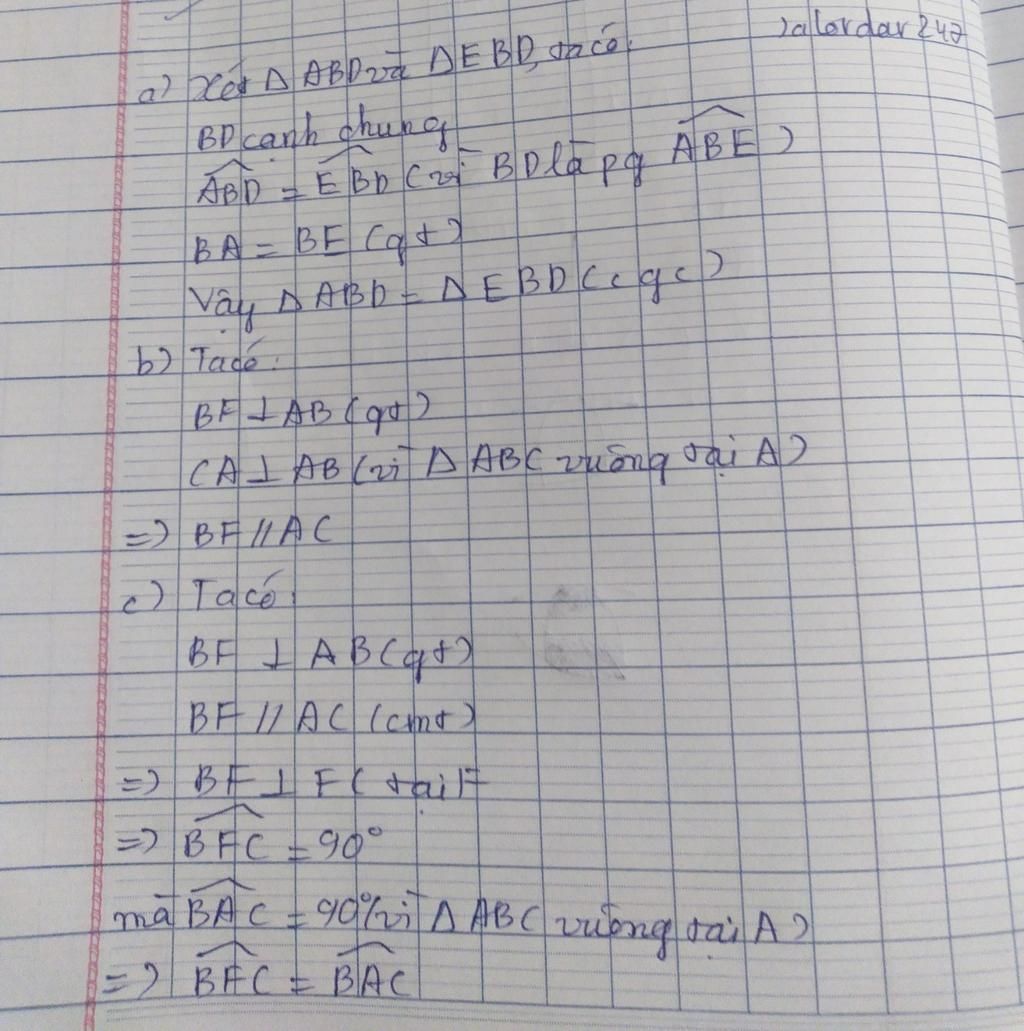 zalordar247
a) Xét Δ ABD và Δ EBD, ta có:
BD cạnh chung
ABD = EBD (vì BD là pg ABE)
BA = BE (gt)
Vậy Δ ABD = Δ EBD (cgc)
b) Ta có:
BF ⊥ AB (gt)
CA ⊥ AB (vì Δ ABC vuông tại A)
=> BF // AC
c) Ta có:
BF ⊥ AB (gt)
BF // AC (cmt)
=> BF ⊥ FC tại F
=> BFC = 90°
mà BAC = 90° (vì Δ ABC vuông tại A)
=> BFC = BAC